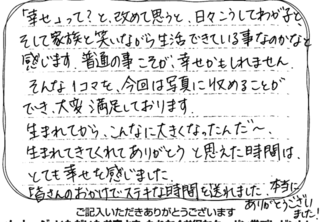 「幸せ」って？と、改めて思うと、日々こうしてわが子と、
そして家族と笑いながら生活できている事なのかなと
感じます。普通の事こそが、幸せかもしれません。
そんな1コマを、今回は写真に収めることが
でき、大変満足しております。
生まれてから、こんなに大きくなったんだ～、
生まれてきてくれてありがとう と思えた時間は、
とても幸せを感じました。
皆さんのおかげでステキな時間を送れました。本当に
ありがとうござい
ます。
ご記入いただきありがとうございます